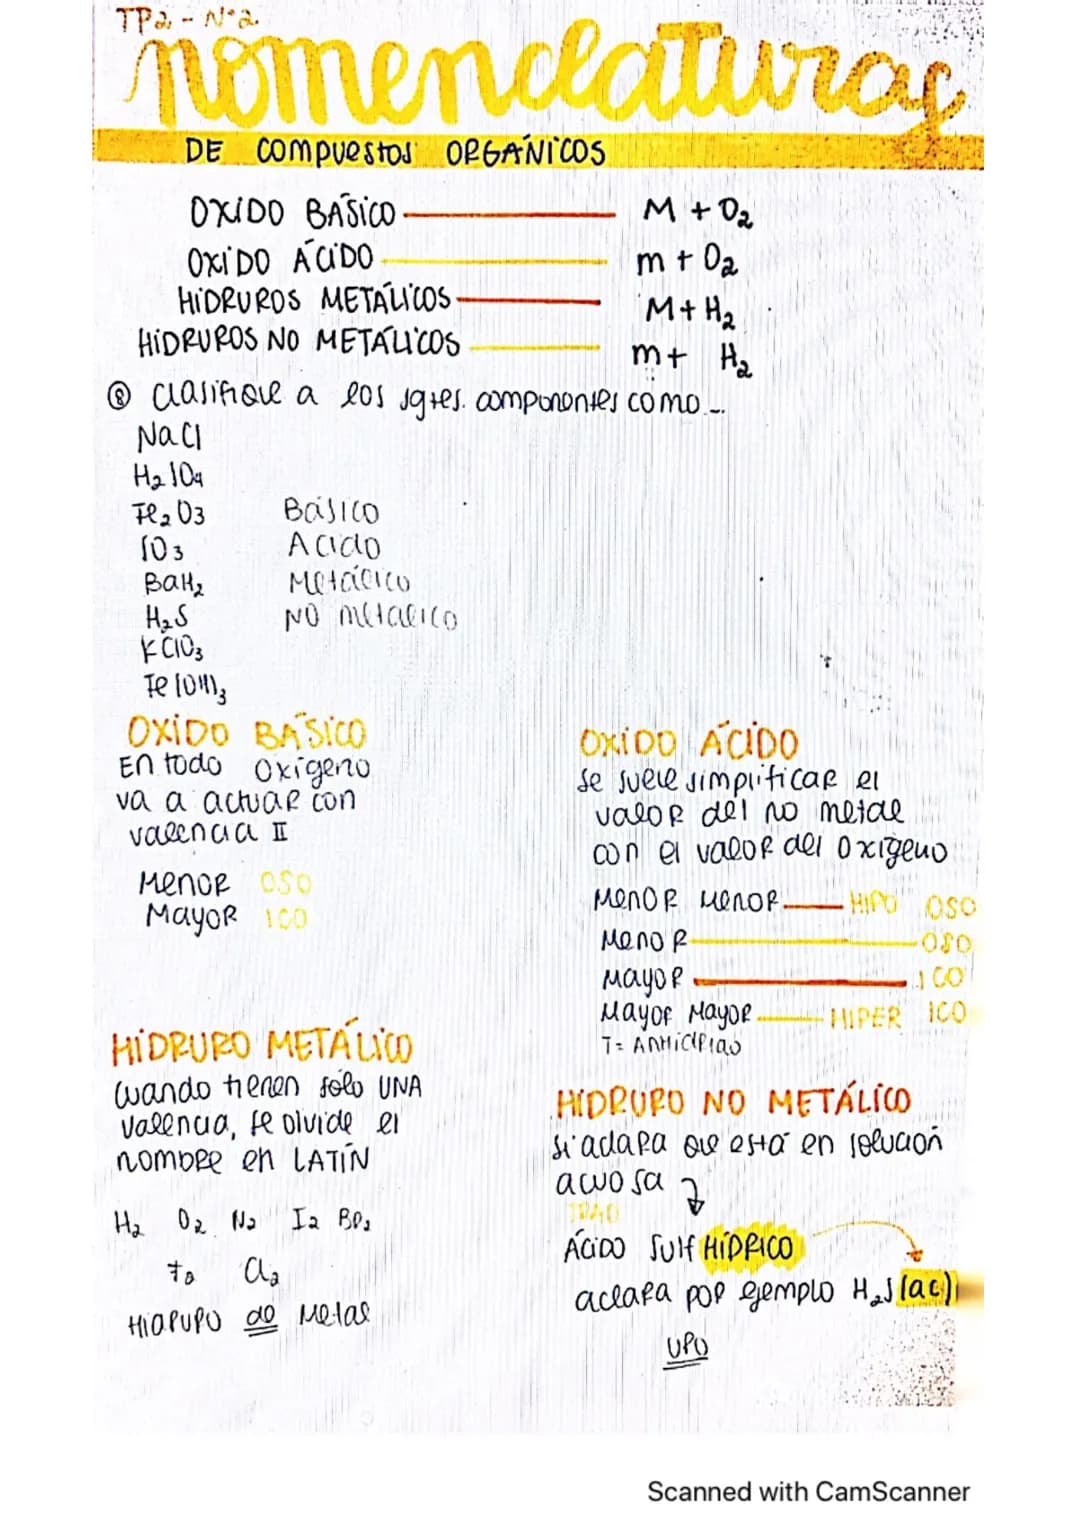 TP2 - N°2
nomenclaturas
DE COMPUESTOS ORGÁNICOS
OXIDO BÁSICO M + O2
OXIDO ÁCIDO m + O2
HIDRUROS METÁLICOS M + H2
HIDRUROS NO METÁLICOS m + H2
⑧ Clasifique a los sgtes. componentes como...
NaCl
H2SO4
Fe2O3 Básico
SO3 Acido
BaH2 Metálico
H2S NO metalico
KClO3
Fe(OH)3
OXIDO BÁSICO
En todo oxigeno
va a actuar con
valencia II
Menor OSO
Mayor ICO
OXIDO ÁCIDO
se suele simplificar el
valor del no metal
con el valor del oxigeno
Menor Menor HIPO OSO
Menor OSO
Mayor ICO
Mayor Mayor HIPER ICO
T= Anhidrido
HIDRURO METÁLICO
Cuando tienen solo UNA
valencia, se divide el
nombre en LATÍN
H2 O2 N2 I2 Br2
F2 Cl2
Hidruro de Metal
HIDRURO NO METÁLICO
si aclara que está en solución
acuosa
TRAD
ÁCIDO SulfHÍDRICO
aclara por ejemplo H2S (ac)
URO
Scanned with CamScanner